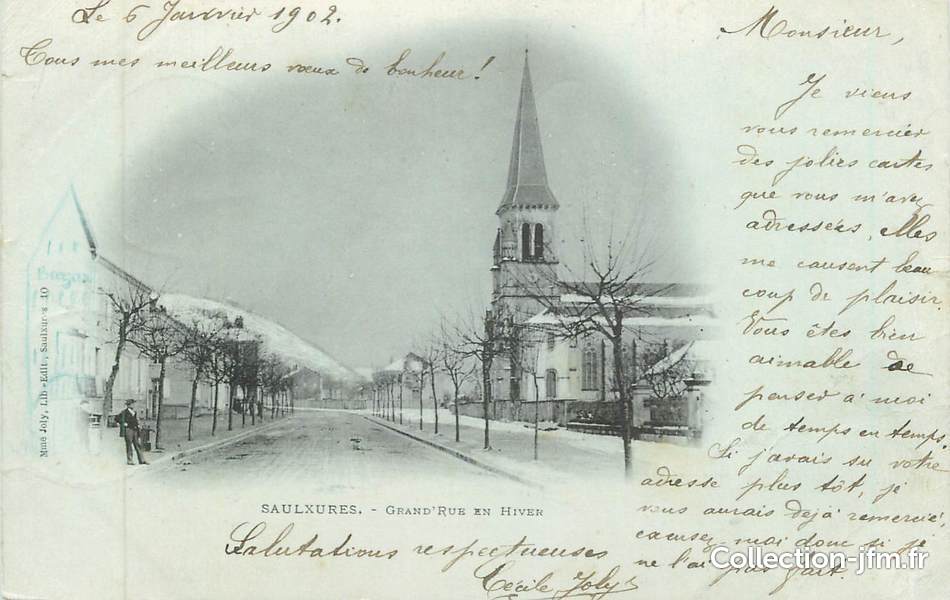 Le 6 Janvier 1902.
Tous mes meilleurs vœux de bonheur !
Monsieur,
Je viens
vous remercier
des jolies cartes
que vous m'avez
adressées, elles
me causent beau
coup de plaisir
Vous êtes bien
aimable de
penser à moi
de temps en temps.
Si j'avais su votre
adresse plus tôt, je
vous aurais dejà remercié
excusez-moi donc si je
ne l'ai pas fait.
Mme Joly, Lib.-Edit., Saulxures 10
SAULXURES. - GRAND'RUE EN HIVER
Salutations respectueuses
Cécile Joly
Collection-jfm.fr